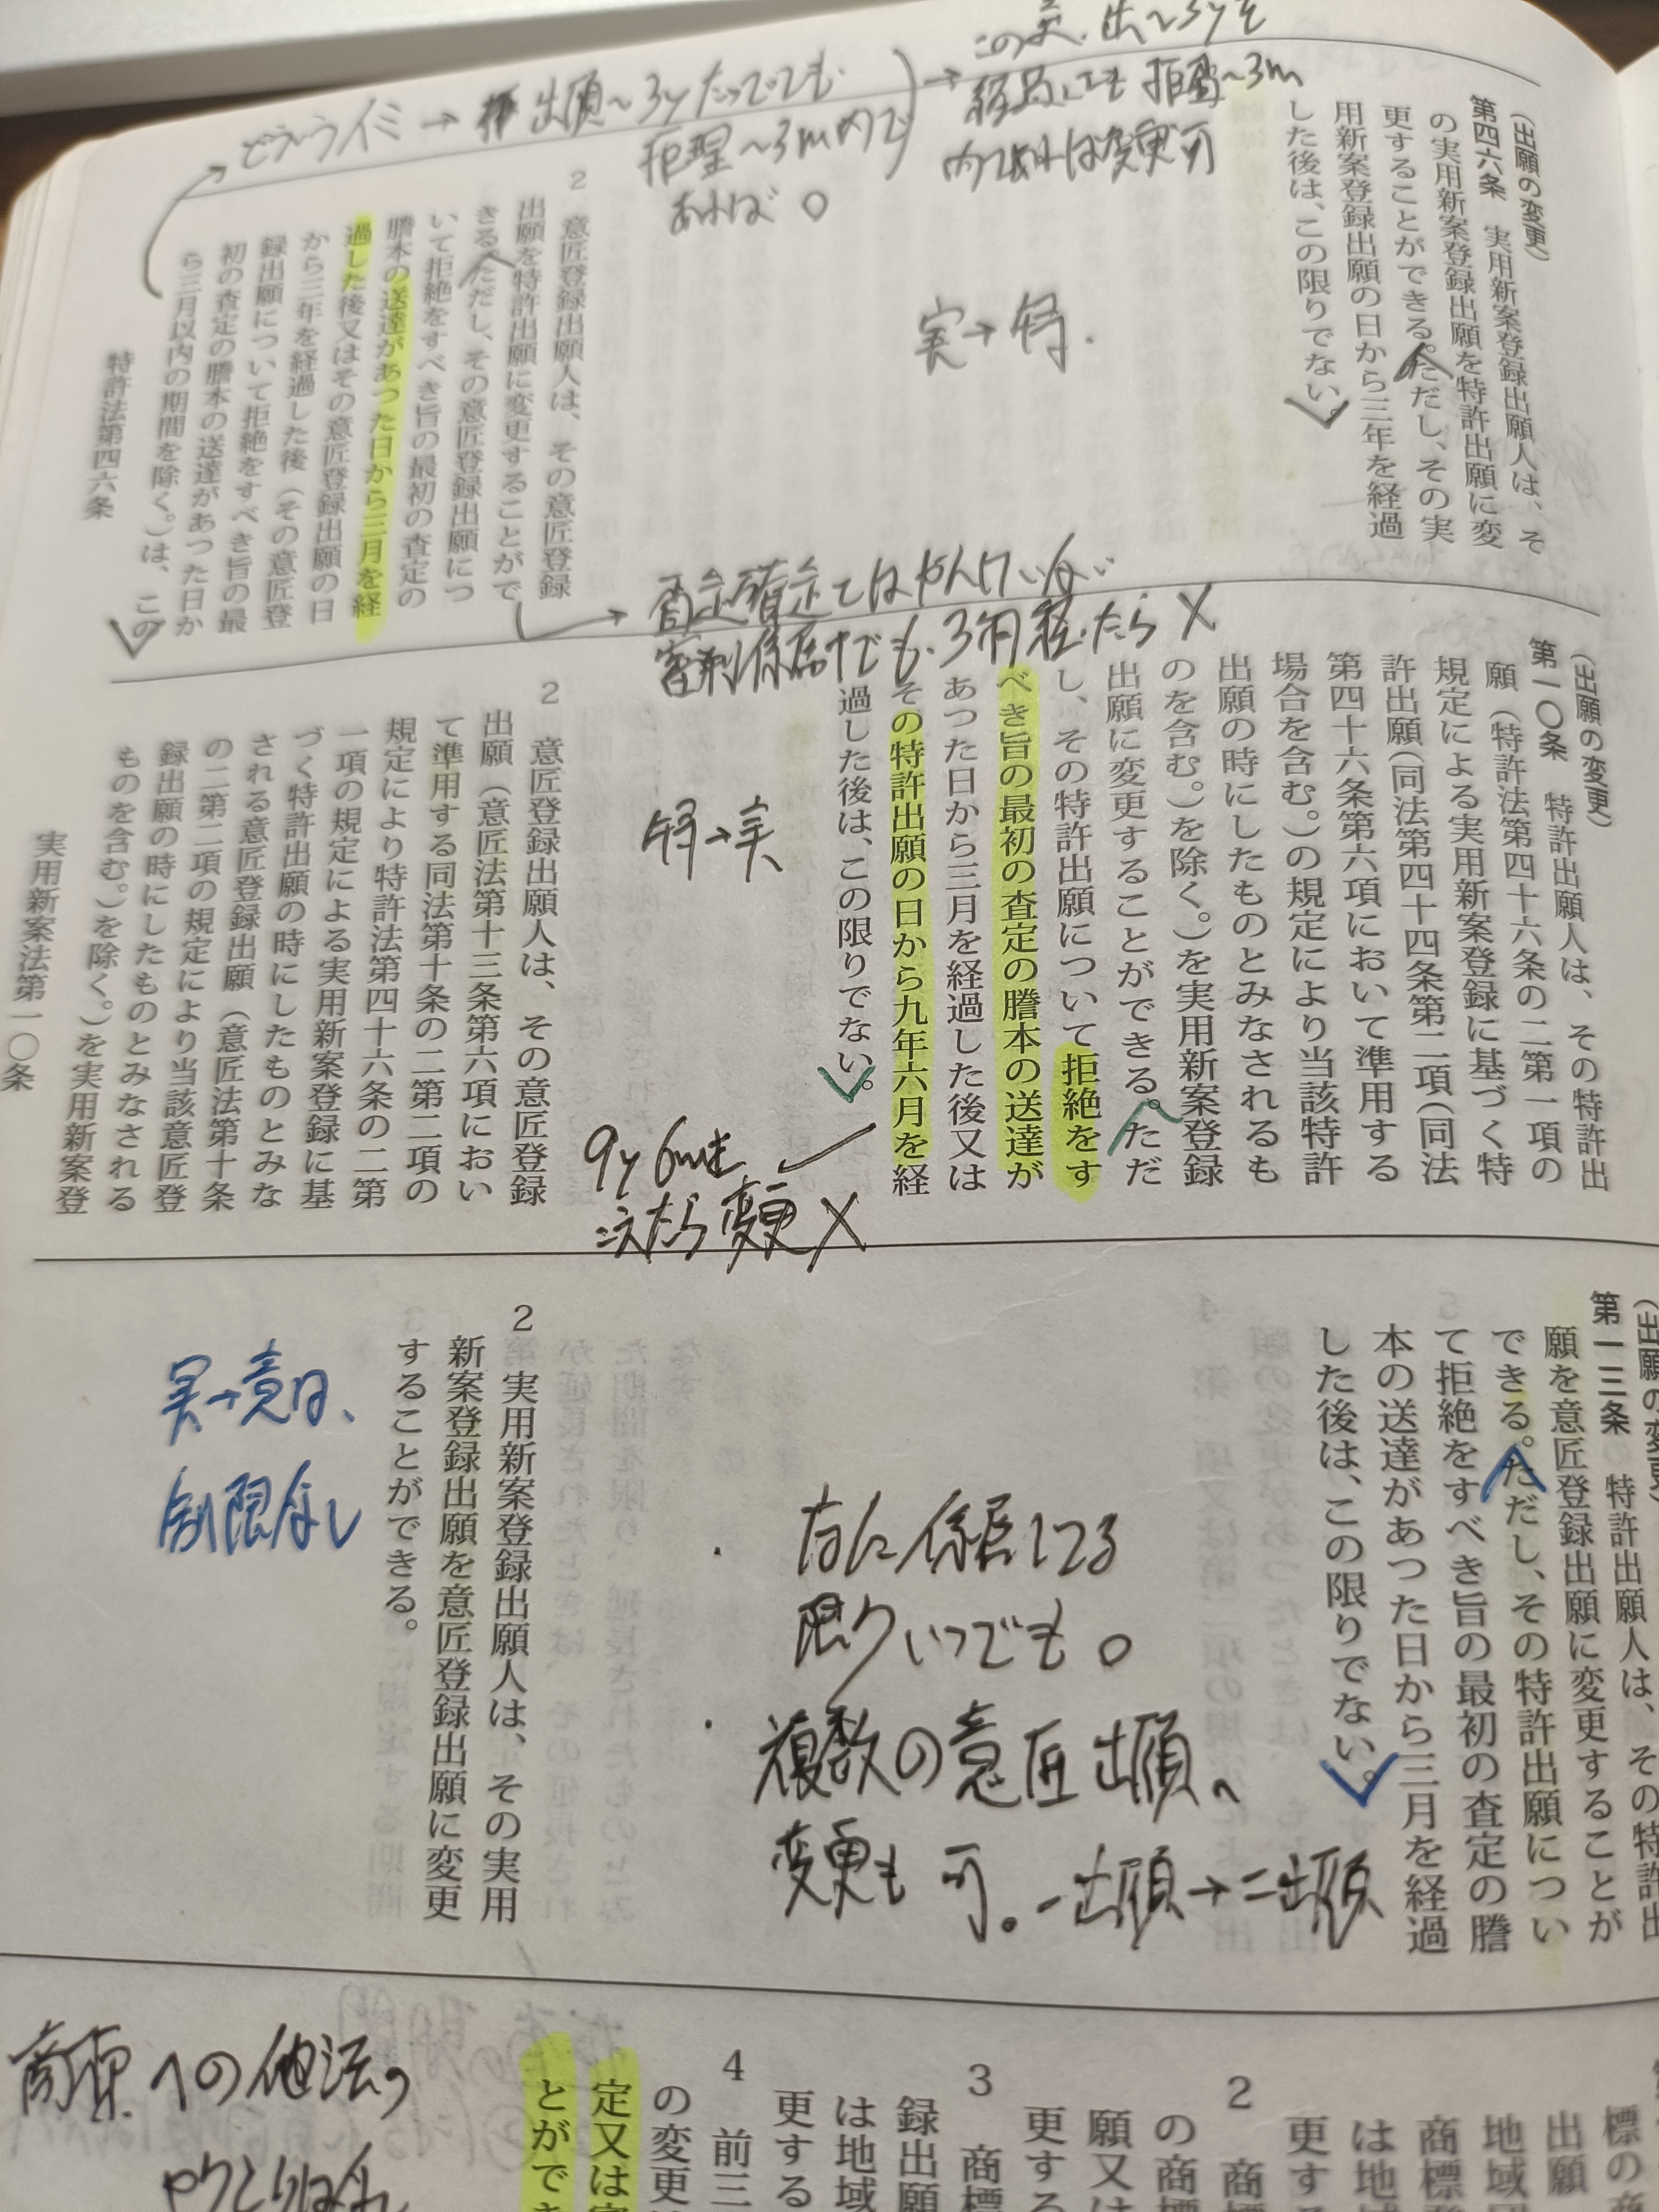 この実、出~3yを
経過しても拒査~3m
内であれば変更可
どういうイミ→出願~3yたってても
拒理~3m内で
あれば○
(出願の変更)
第四六条　実用新案登録出願人は、そ
の実用新案登録出願を特許出願に変
更することができる。ただし、その実
用新案登録出願の日から三年を経過
した後は、この限りでない。
実→特.
2　意匠登録出願人は、その意匠登録
出願を特許出願に変更することがで
きる。ただし、その意匠登録出願につ
いて拒絶をすべき旨の最初の査定の
謄本の送達があつた日から三月を経
過した後又はその意匠登録出願の日
から三年を経過した後（その意匠登
録出願について拒絶をすべき旨の最
初の査定の謄本の送達があつた日か
ら三月以内の期間を除く。）は、この
特許法第四六条
→査定確定ではなんけいない
審判係属中でも、3月経ったら×
(出願の変更)
第一〇条　特許出願人は、その特許出
願（特許法第四十六条の二第一項の
規定による実用新案登録に基づく特
許出願（同法第四十四条第二項（同法
第四十六条第六項において準用する
場合を含む。）の規定により当該特許
出願の時にしたものとみなされるも
のを含む。）を除く。）を実用新案登録
出願に変更することができる。ただ
し、その特許出願について拒絶をす
べき旨の最初の査定の謄本の送達が
あつた日から三月を経過した後又は
その特許出願の日から九年六月を経
過した後は、この限りでない。
特→実
9y6mを
こえたら変更×
2　意匠登録出願人は、その意匠登録
出願（意匠法第十三条第六項におい
て準用する同法第十条の二第二項の
規定により特許法第四十六条の二第
一項の規定による実用新案登録に基
づく特許出願の時にしたものとみな
される意匠登録出願（意匠法第十条
の二第二項の規定により当該意匠登
録出願の時にしたものとみなされる
ものを含む。）を除く。）を実用新案登
実用新案法第一〇条
(出願の変更)
第一三条　特許出願人は、その特許出
願を意匠登録出願に変更することが
できる。ただし、その特許出願につい
て拒絶をすべき旨の最初の査定の謄
本の送達があつた日から三月を経過
した後は、この限りでない。
・なに係属してる
限りいつでも○
・複数の意匠出願へ
変更も可。一出願→二出願
2　実用新案登録出願人は、その実用
新案登録出願を意匠登録出願に変更
することができる。
実→意は、
制限なし
標の商
出願
地域
商標登
は地
更す
2　商標
の商標
願又は
更する
3　商標
録出願
は地域
更する
4　前三
の変更
定又は審
とができ
商標への他法の
やりとりはなし